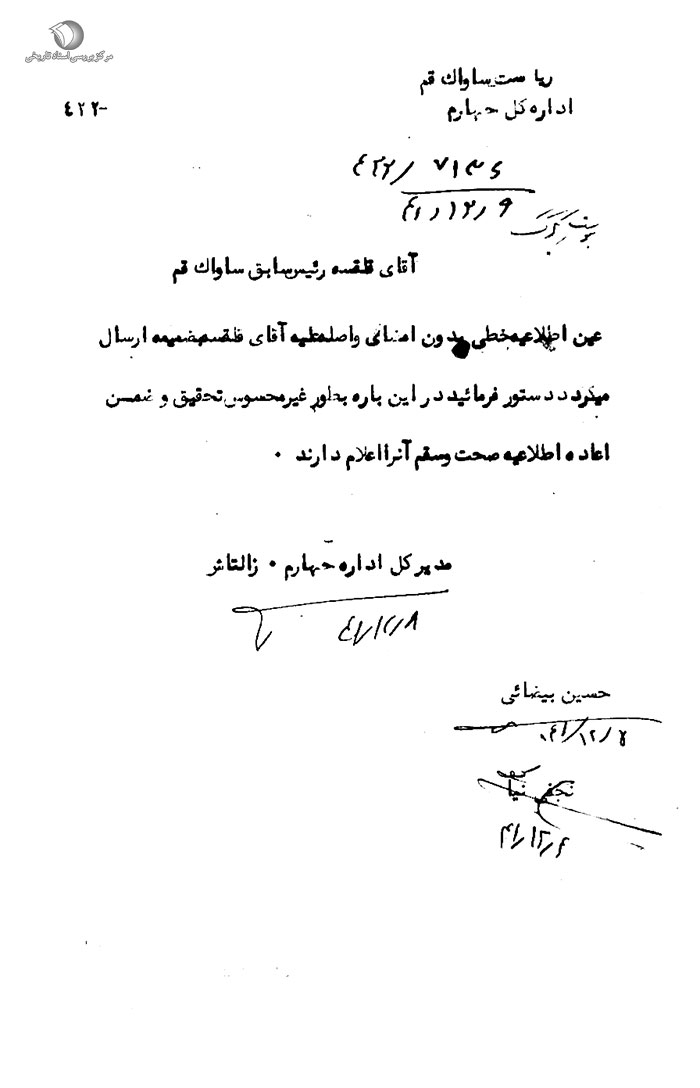 مرکز بررسی اسناد تاریخی
ریاست ساواك قم
اداره کل چهارم
۴۲۲-
۴۳۲/ ۷۱۳۶
۴۱/۱۲/۹
آقای قلقسه رئیس سابق ساواك قم
عین اطلاعیه خطی بدون امضائی واصله علیه آقای قلقسه بضمیمه ارسال
میگردد دستور فرمائید در این باره بطور غیر محسوس تحقیق و ضمن
اعاده اطلاعیه صحت وسقم آنرا اعلام دارند ۰
مدیر کل اداره چهارم ۰ زالتاش
۴۱/۱۲/۸
حسین بیضائی
نجفی نیا
۴۱/۱۲/۶